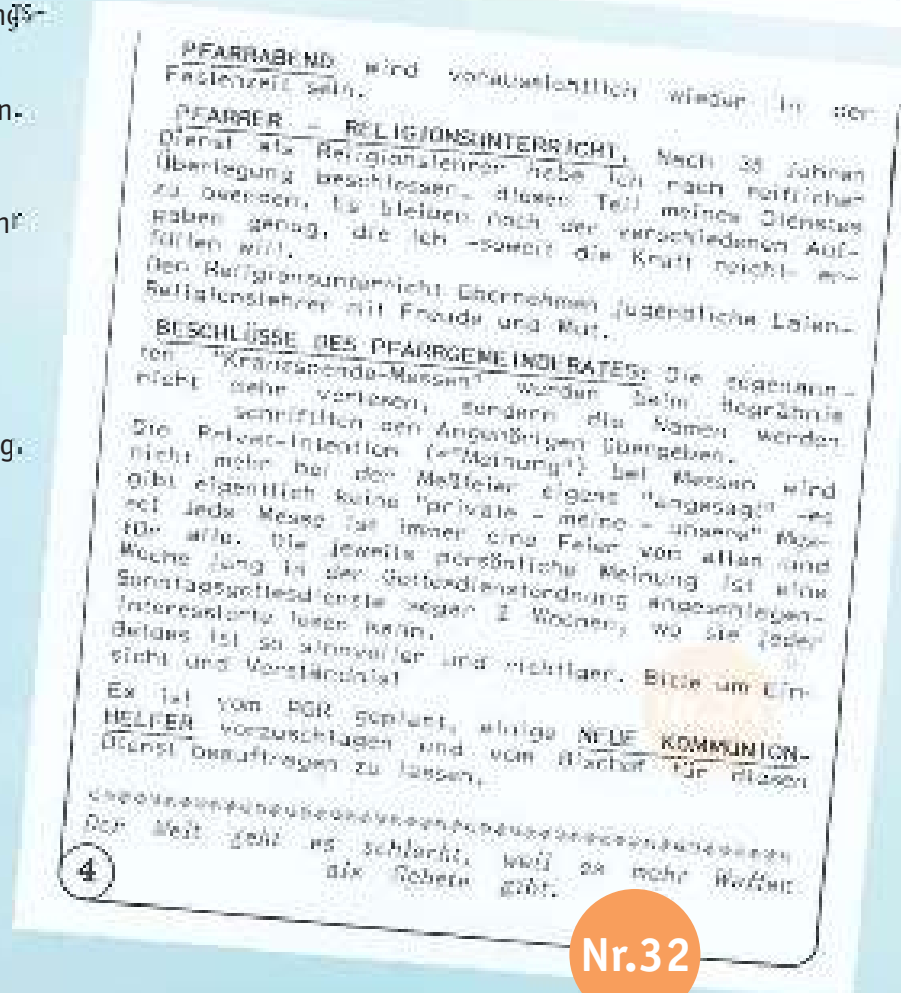 ngs-
n.
hr
g.
PFARRABEND wird voraussichtlich wieder in der
Fastenzeit sein.
PFARRER - RELIGIONSUNTERRICHT. Nach 38 Jahren
Dienst als Religionslehrer habe ich nach reiflicher
Überlegung beschlossen, diesen Teil meines Dienstes
zu beenden. Es bleiben noch der verschiedenen Auf-
gaben genug, die ich -soweit die Kraft reicht- er-
füllen will.
Den Religionsunterricht übernehmen jugendliche Laien-
Religionslehrer mit Freude und Mut.
BESCHLÜSSE DES PFARRGEMEINDERATES: Die sogenann-
ten "Kranzspende-Messen" werden beim Begräbnis
nicht mehr verlesen, sondern die Namen werden
schriftlich den Angehörigen übergeben.
Die Privat-Intention (="Meinung") bei Messen wird
nicht mehr bei der Meßfeier eigens "angesagt" -es
gibt eigentlich keine "private - meine - unsere" Mes-
se! Jede Messe ist immer eine Feier von allen und
für alle. Die jeweils persönliche Meinung ist eine
Woche lang in der Gottesdienstordnung angeschlagen-
Sonntagsgottesdienste sogar 2 Wochen, wo sie jeder
Interessierte lesen kann.
Beides ist so sinnvoller und richtiger. Bitte um Ein-
sicht und Verständnis!
Es ist vom PGR geplant, einige NEUE KOMMUNION-
HELFER vorzuschlagen und vom Bischof für diesen
Dienst beauftragen zu lassen.
Der Welt geht es schlecht, weil es mehr Waffen
als Gebete gibt.
4
Nr.32